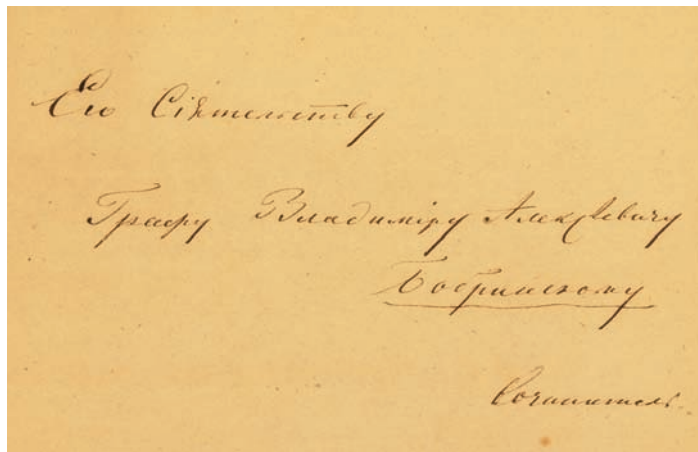 Его Сіятельству
Графу Владиміру Алексѣевичу
Бобринскому
Сочинитель.